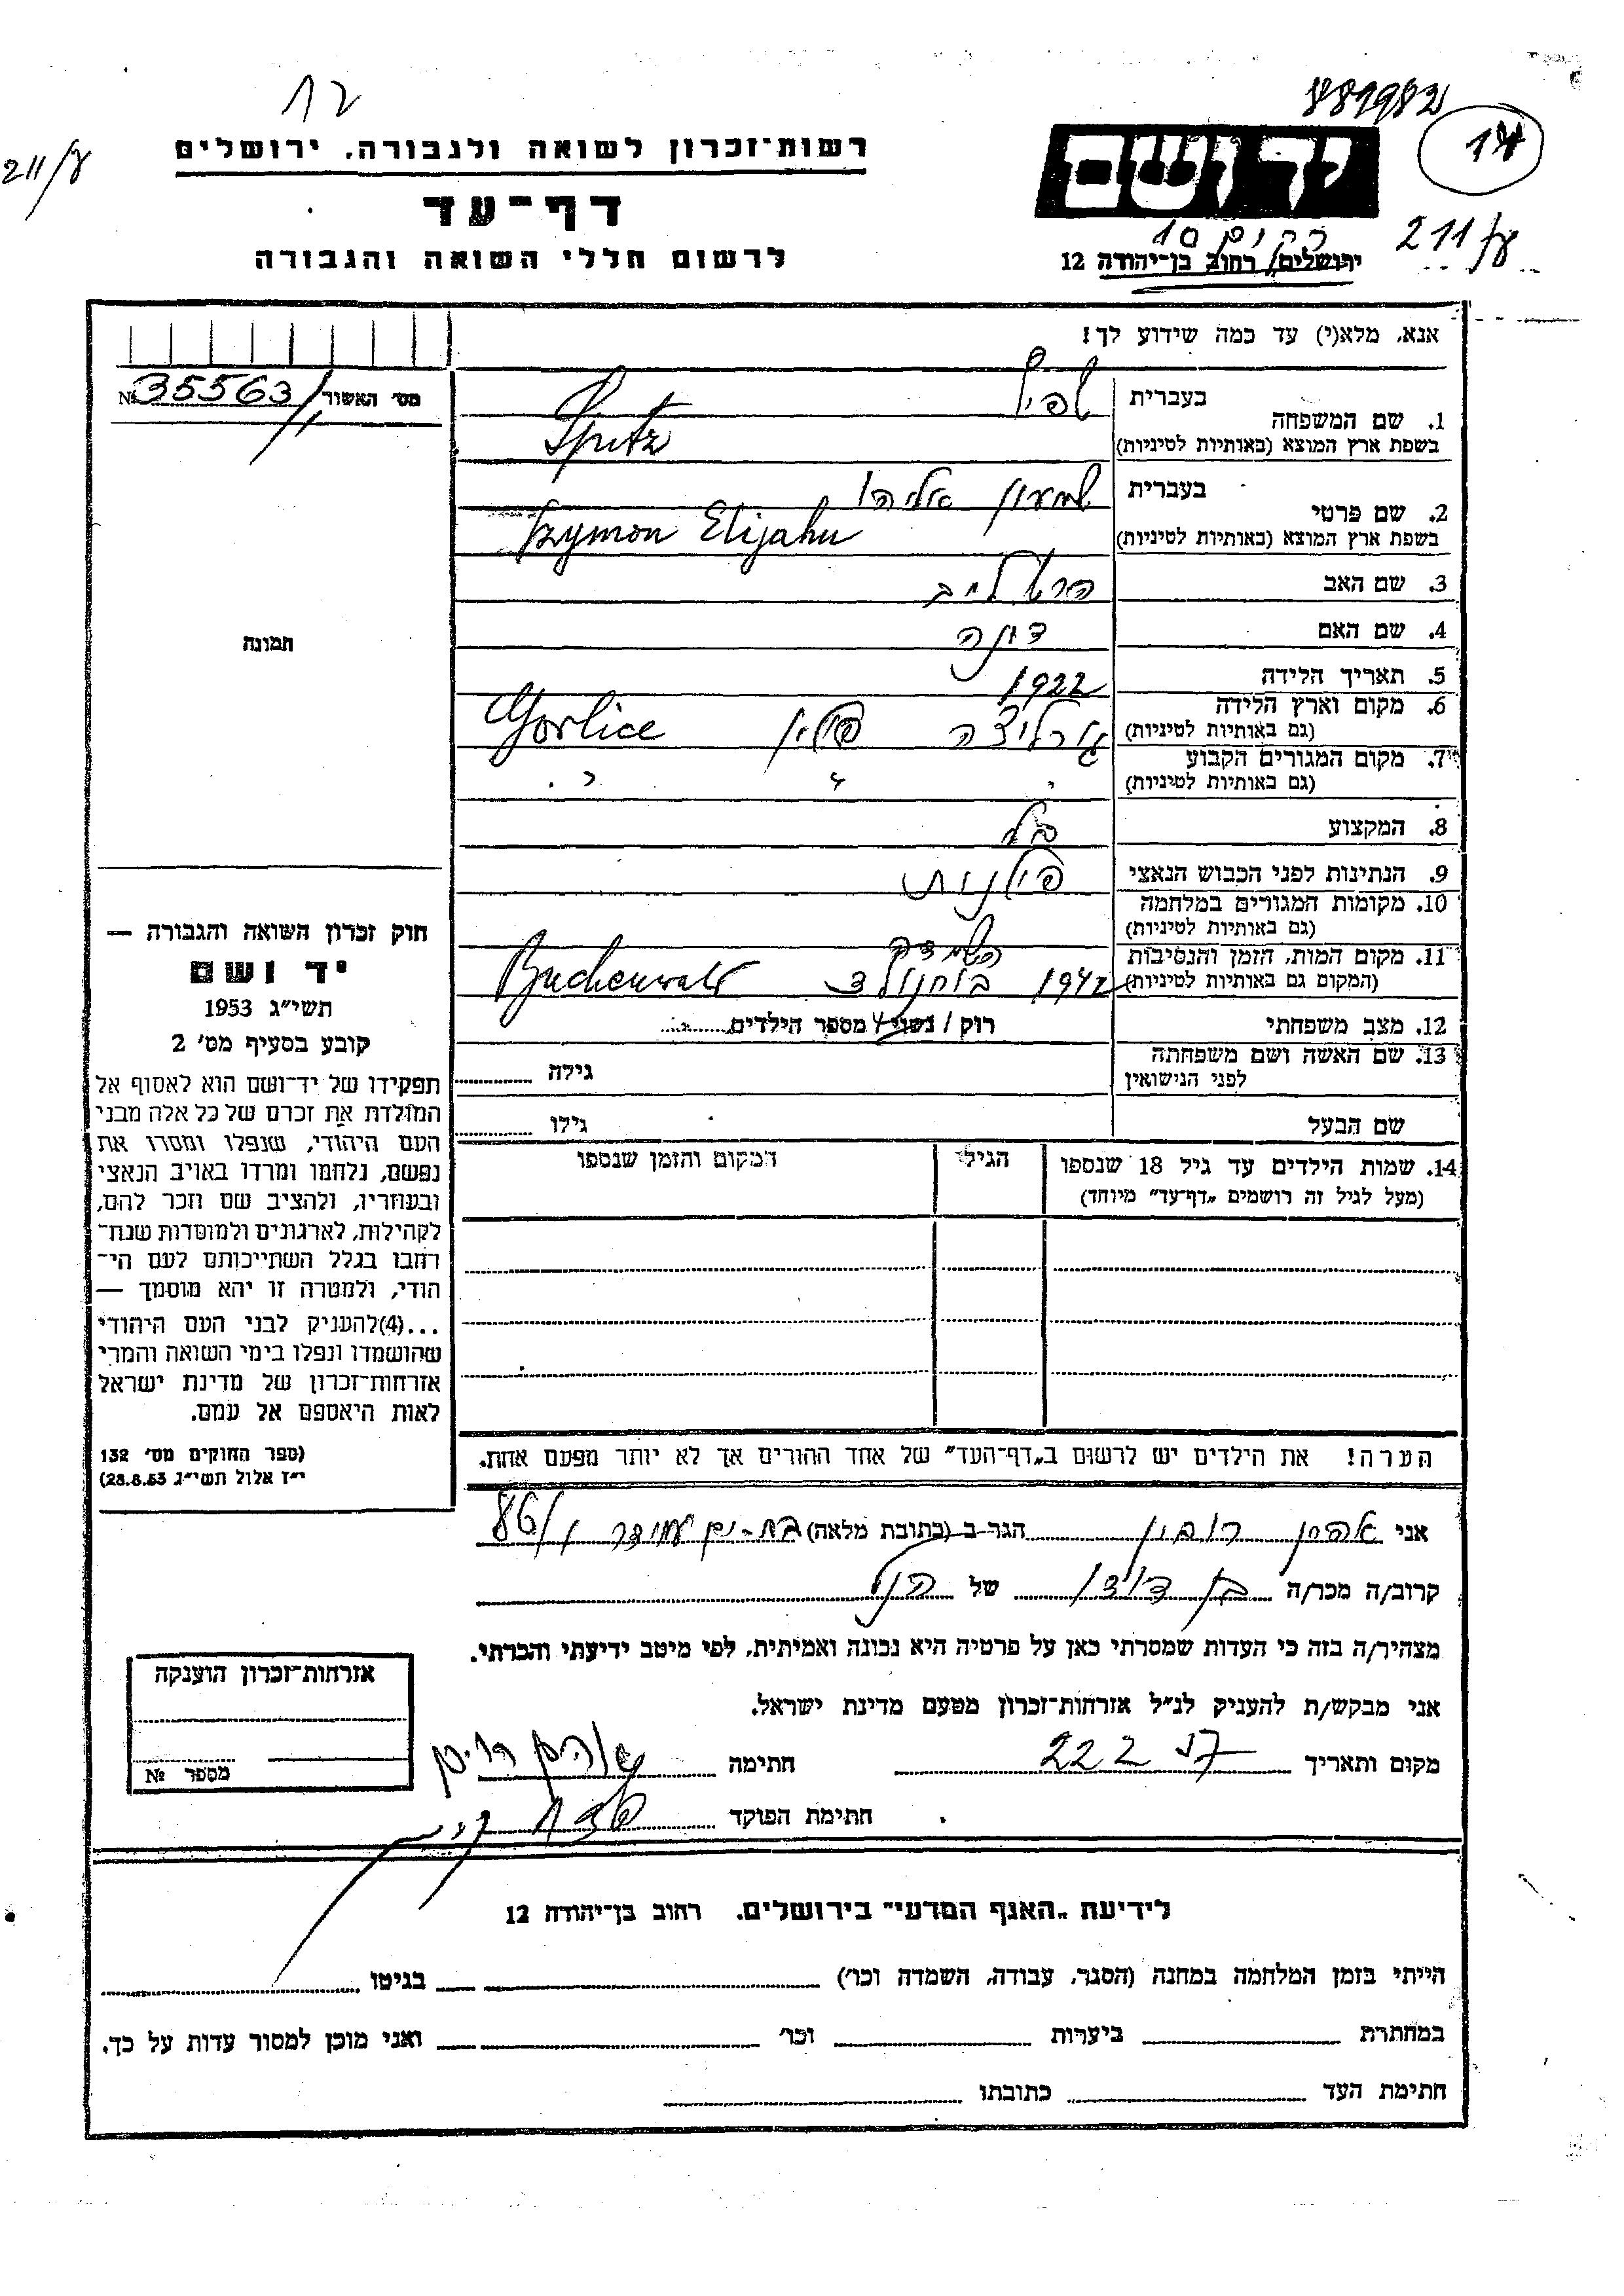 12
881982
14
רשות־זכרון לשואה ולגבורה, ירושלים
211/ע
דף־עד
לרשום חללי השואה והגבורה
יד ושם
211/ע
ירושלים, רחוב בן־יהודה 12
אנא, מלא(י) עד כמה שידוע לך!
מס׳ האשור № 35563
תמונה
1. שם המשפחה
בעברית שפיץ
בשפת ארץ המוצא (באותיות לטיניות) Spitz
2. שם פרטי
בעברית שמעון אליהו
בשפת ארץ המוצא (באותיות לטיניות) Szymon Elijahu
3. שם האב הרש לייב
4. שם האם
5. תאריך הלידה 1922
6. מקום וארץ הלידה
(גם באותיות לטיניות) גורליצה פולין Gorlice
7. מקום המגורים הקבוע
(גם באותיות לטיניות) " " "
8. המקצוע
9. הנתינות לפני הכבוש הנאצי פולנית
10. מקומות המגורים במלחמה
(גם באותיות לטיניות)
11. מקום המות, הזמן והנסיבות
(המקום גם באותיות לטיניות) 1942 בוחנולד Buchenwald
12. מצב משפחתי רוק / נשוי / מספר הילדים
13. שם האשה ושם משפחתה
לפני הנישואין
גילה
שם הבעל
גילו
14. שמות הילדים עד גיל 18 שנספו
(מעל לגיל זה רושמים „דף־עד” מיוחד)
הגיל
המקום והזמן שנספו
הערה! את הילדים יש לרשום ב„דף־העד” של אחד ההורים אך לא יותר מפעם אחת.
חוק זכרון השואה והגבורה —
יד ושם
תשי״ג 1953
קובע בסעיף מס׳ 2
תפקידו של יד־ושם הוא לאסוף אל
המולדת את זכרם של כל אלה מבני
העם היהודי, שנפלו ומסרו את
נפשם, נלחמו ומרדו באויב הנאצי
ובעוזריו, ולהציב שם וזכר להם,
לקהילות, לארגונים ולמוסדות שנח־
רבו בגלל השתייכותם לעם הי־
הודי, ולמטרה זו יהא מוסמך —
...(4)להעניק לבני העם היהודי
שהושמדו ונפלו בימי השואה והמרי
אזרחות־זכרון של מדינת ישראל
לאות היאספם אל עמם.
(ספר החוקים מס׳ 132
י״ז אלול תשי״ג 28.8.53)
אני אהרן רובין הגר ב (כתובת מלאה) בת-ים 86/
קרוב/ה מכר/ה בן דודו של הנ״ל
מצהיר/ה בזה כי העדות שמסרתי כאן על פרטיה היא נכונה ואמיתית, לפי מיטב ידיעתי והכרתי.
אני מבקש/ת להעניק לנ״ל אזרחות־זכרון מטעם מדינת ישראל.
מקום ותאריך 222 חתימה אהרן רובין
חתימת הפוקד
אזרחות־זכרון הוענקה
מספר №
לידיעת „האגף המדעי” בירושלים, רחוב בן־יהודה 12
הייתי בזמן המלחמה במחנה (הסגר, עבודה, השמדה וכו׳) בגיטו
במחתרת ביערות וכו׳ ואני מוכן למסור עדות על כך.
חתימת העד כתובתו